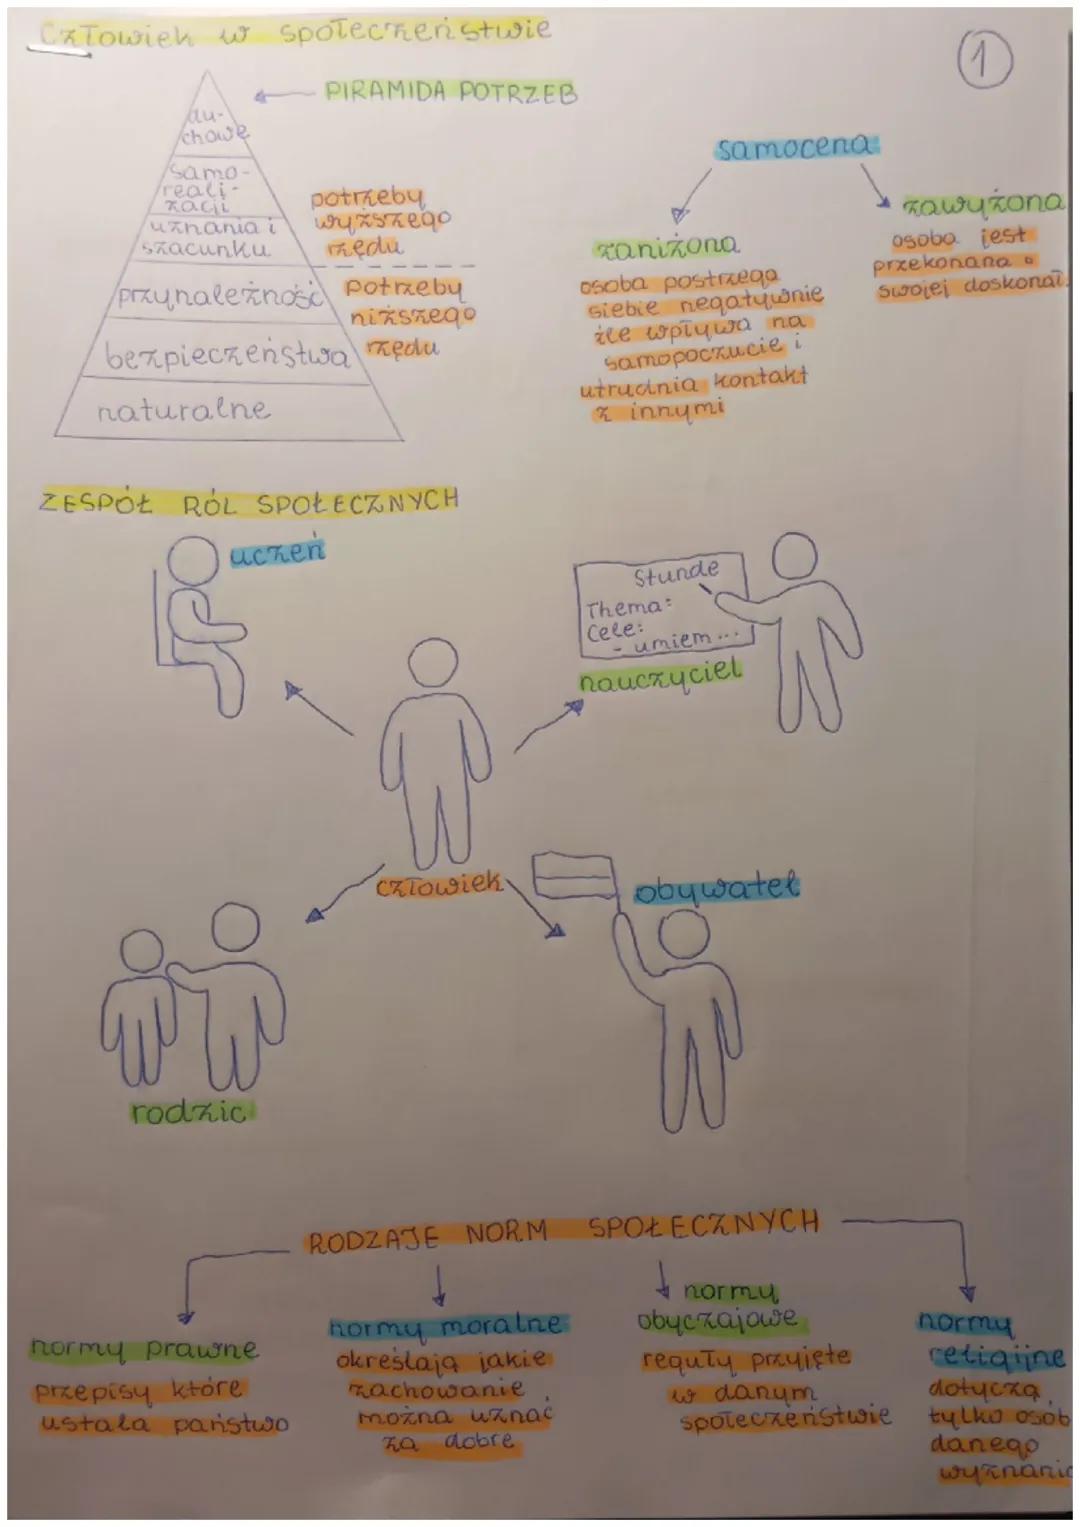 Człowiek w społeczeństwie
1
PIRAMIDA POTRZEB
du-
chowe
samo-
reali-
zacji
uznania i
szacunku
przynależność
bezpieczeństwa
naturalne
potrzeby
wyższego
rzędu
potrzeby
niższego
rzędu
samocena
zaniżona
osoba postrzega
siebie negatywnie
źle wpływa na
samopoczucie i
utrudnia kontakt
z innymi
zawyżona
osoba jest
przekonana o
swojej doskonał.
ZESPÓŁ RÓL SPOŁECZNYCH
uczeń
Stunde
Thema:
Cele:
- umiem...
nauczyciel
człowiek
obywatel
rodzic
RODZAJE NORM SPOŁECZNYCH
normy prawne
przepisy które
ustala państwo
normy moralne
określają jakie
zachowanie
można uznać
za dobre
normy
obyczajowe
reguły przyjęte
w danym
społeczeństwie
normy
religijne
dotyczą
tylko osób
danego
wyznania